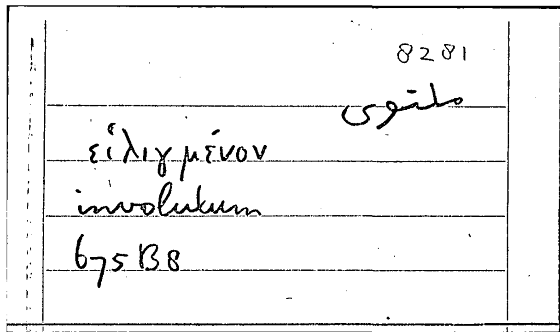 8281
ملتوى
εἰλιγμένον
involutum
675 B8